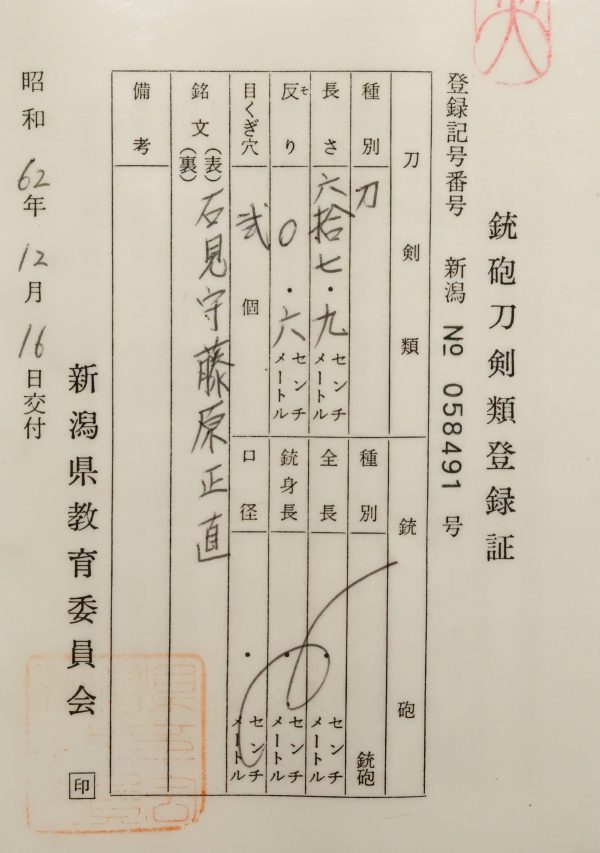 銃砲刀剣類登録証
登録記号番号 新潟 № 058491 号
刀剣類
銃砲
種別 刀
種別 銃砲
長さ 六拾七・九 センチメートル
全長 ・ センチメートル
反り 〇・六 センチメートル
モ
銃身長 ・ センチメートル
目くぎ穴 弐個
口径 ・ センチメートル
銘文 (表) 石見守藤原正直
(裏)
備考
昭和62年12月16日交付
新潟県教育委員会 印